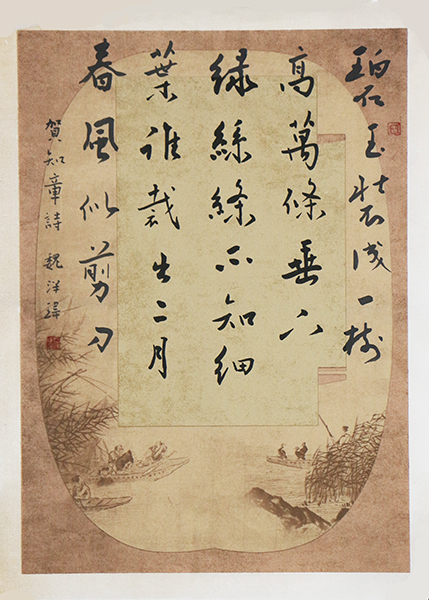 碧玉裝成一樹
高萬條垂下
綠絲絛不知細
葉誰裁出二月
春風似剪刀
賀知章詩 魏洋